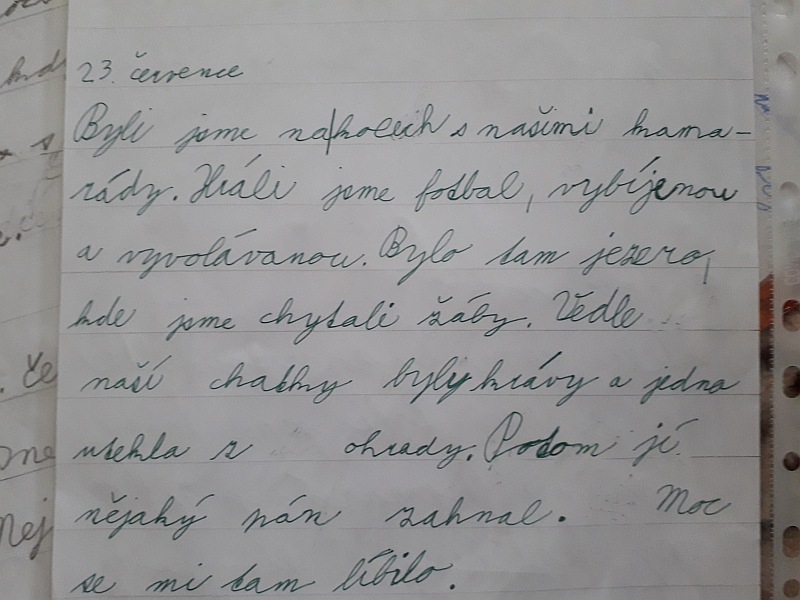 23. července
Byli jsme na|kolech s našimi kama-
rády. Hráli jsme fotbal, vybíjenou
a vyvolávanou. Bylo tam jezero,
kde jsme chytali žáby. Vedle
naší chatky byly krávy a jedna
utekla z ohrady. Potom jí
nějaký pán zahnal. Moc
se mi tam líbilo.